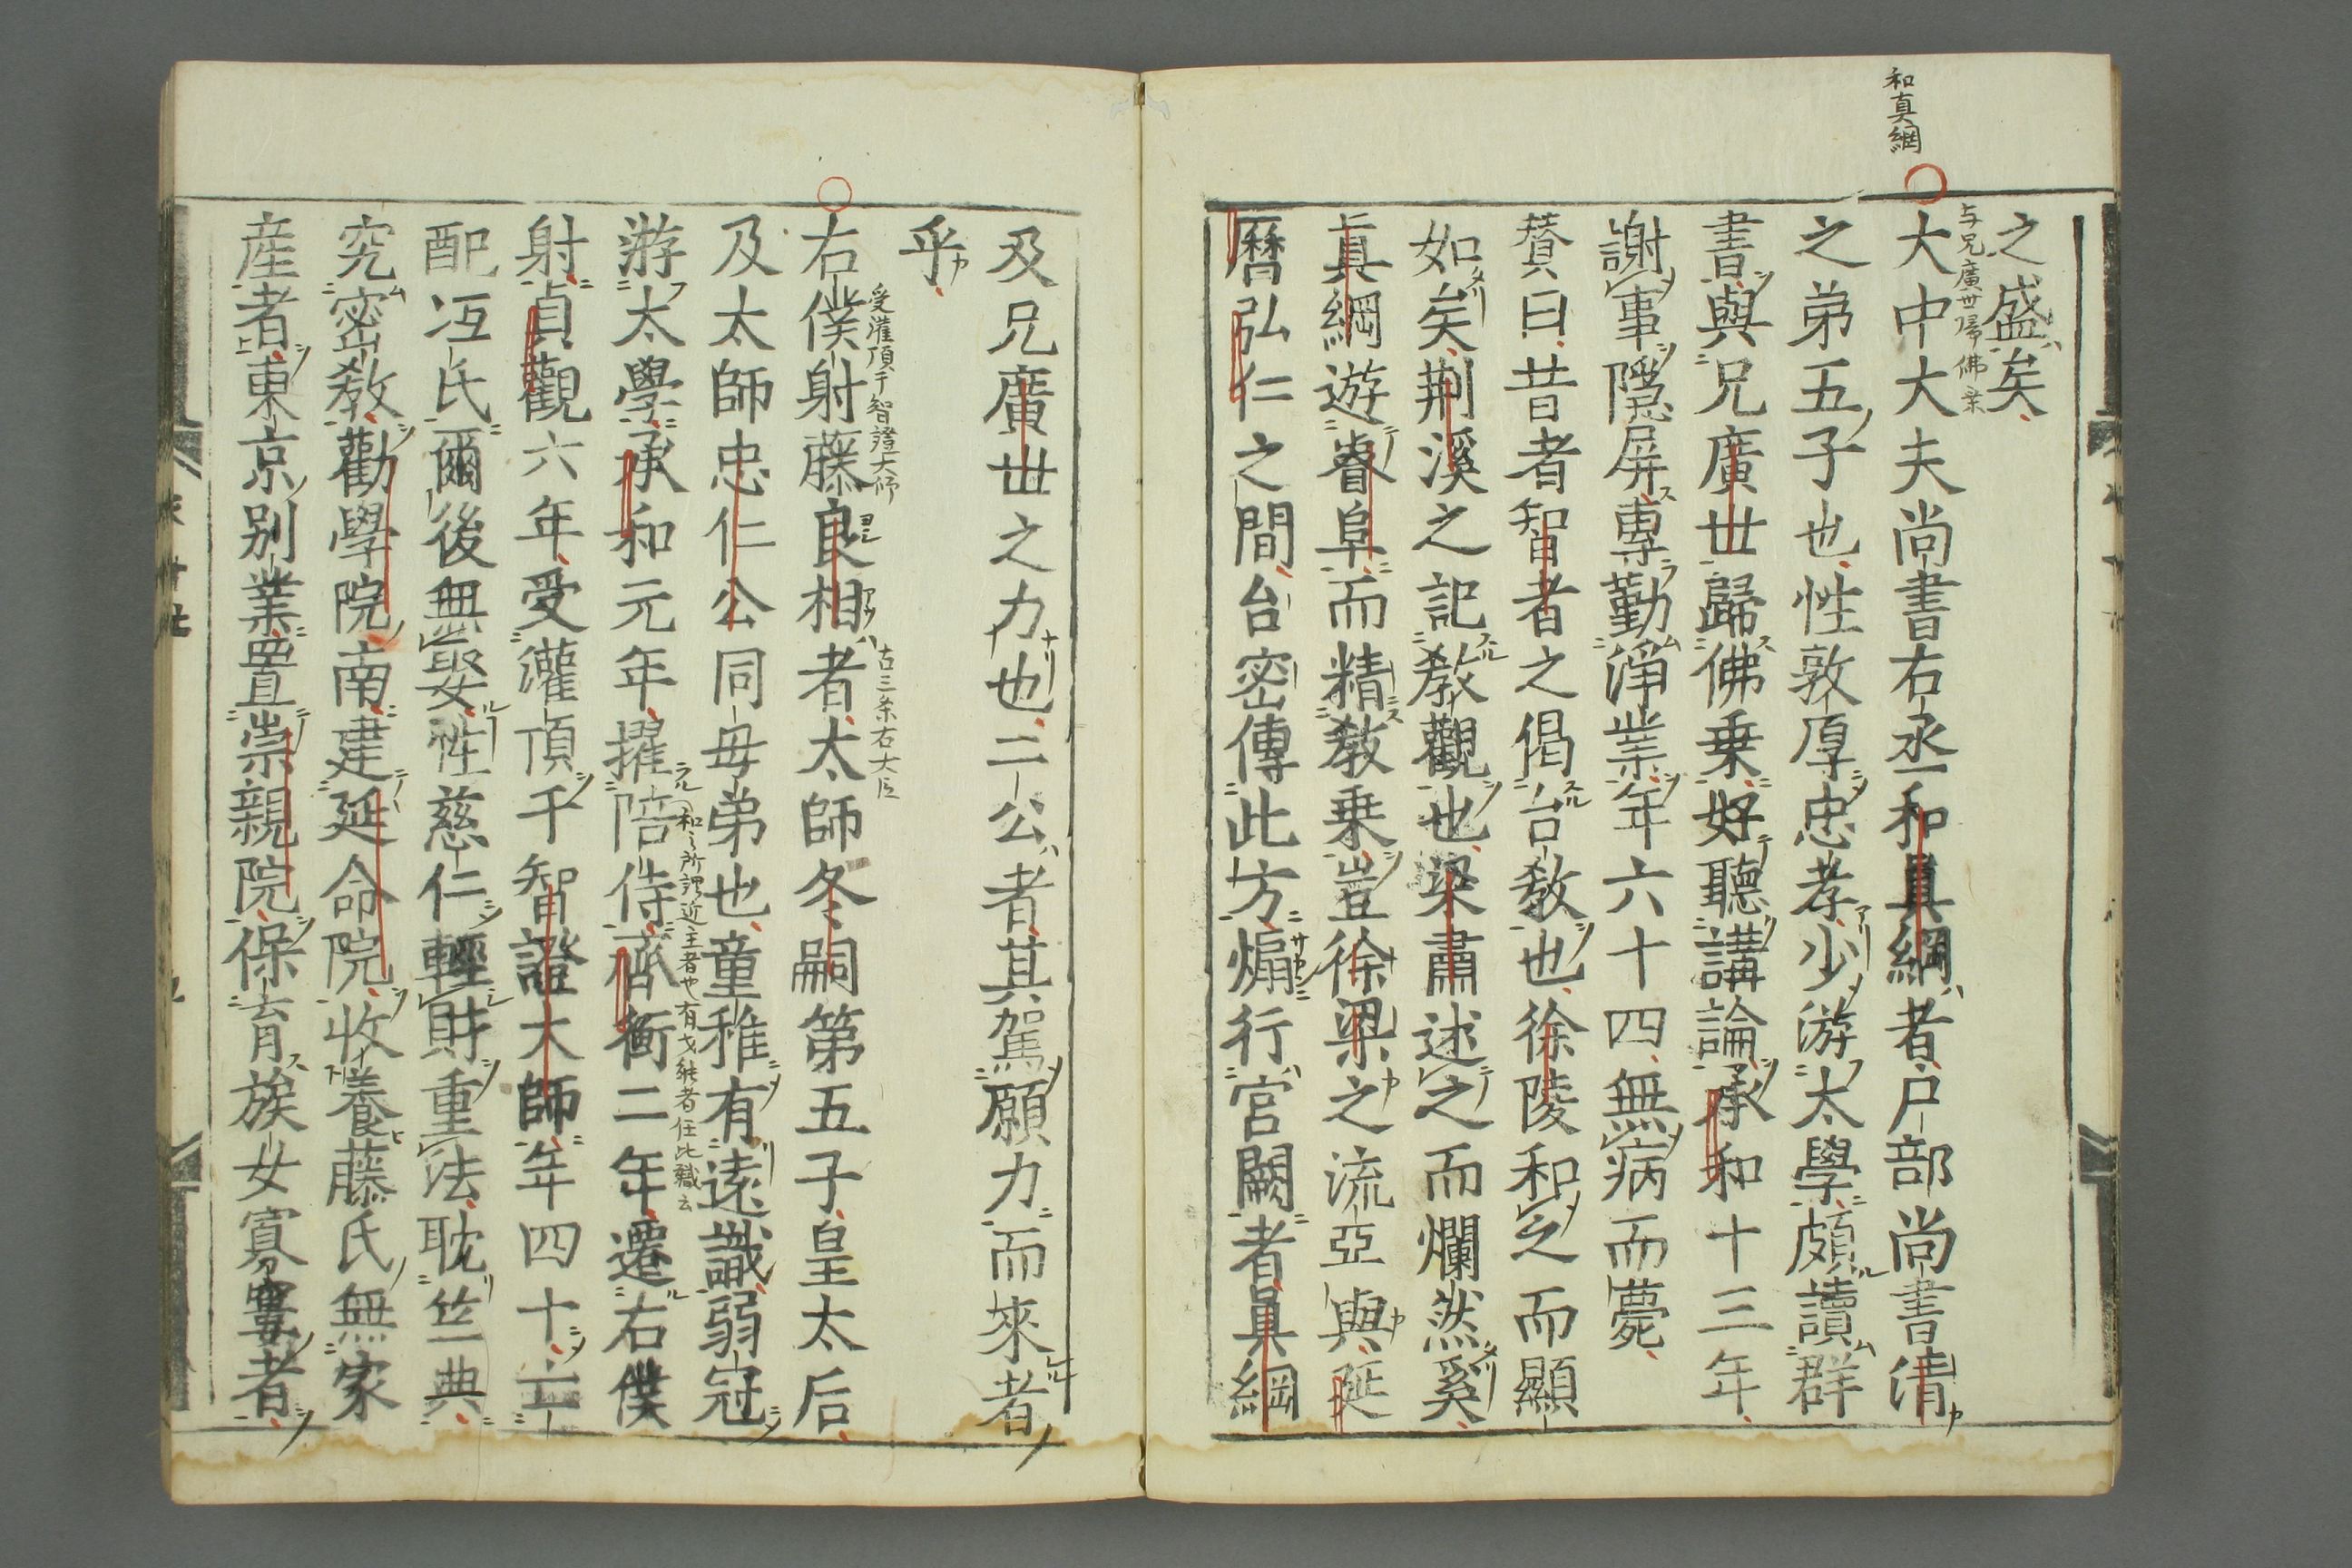 和真綱
之盛矣
与兄廣世歸佛乗
大中大夫尚書右丞和眞綱者戸部尚書清
之弟五子也性敦厚忠孝少游太學頗讀群
書與兄廣世歸佛乗好聽講論承和十三年
謝事隱屏專勤淨業年六十四無病而薨
賛曰昔者智者之偈台敎也徐陵和之而顯
如矣荆溪之記敎觀也梁肅述之而爛然奚
眞綱遊睿阜而精敎乗豈徐梁之流亞與延
曆弘仁之間台密傳此方煽行宮闕者眞綱
及兄廣世之力也二公者其駕願力而來者
乎
受灌頂于智證大師
右僕射藤良相者太師冬嗣第五子皇太后
古三条右大臣
及太師忠仁公同母弟也童稚有遠識弱冠
游太學承和元年擢陪侍齊衡二年遷右僕
和之所謂近主者也有才能者任此職云
射貞觀六年受灌頂于智證大師年四十二
配冱氏爾後無娶性慈仁輕財重法耽竺典
究密敎勸學院南建延命院收養藤氏無家
産者東京別業置崇親院保育族女寡窶者